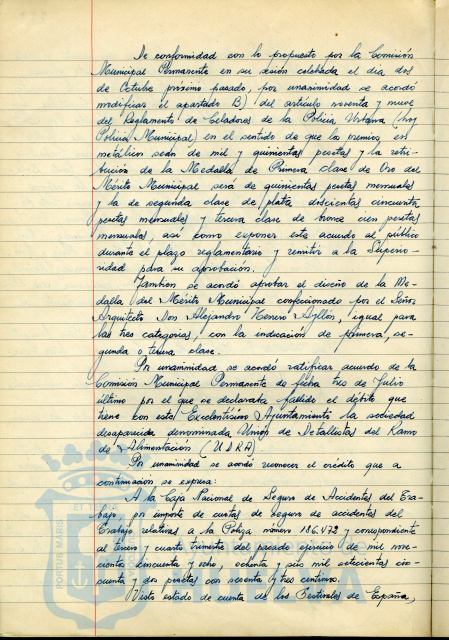 De conformidad con lo propuesto por la Comisión
Municipal Permanente en su sesión celebrada el día dos
de Octubre próximo pasado, por unanimidad se acordó
modificar el apartado B) del artículo noventa y nueve
del Reglamento de Celadores de la Policía Urbana (hoy
Policía Municipal) en el sentido de que los premios en
metálico sean de mil y quinientas pesetas y la retri-
bución de la Medalla de Primera clase de Oro del
Mérito Municipal será de quinientas pesetas mensuales
y la de segunda clase de plata doscientas cincuenta
pesetas mensuales y tercera clase de bronce cien pesetas
mensuales, así como exponer este acuerdo al público
durante el plazo reglamentario y remitir a la Superio-
ridad para su aprobación.
También se acordó aprobar el diseño de la Me-
dalla del Mérito Municipal confeccionado por el Señor
Arquitecto Don Alejandro Herrero Ayllón, igual para
las tres categorías, con la indicación de primera, se-
gunda o tercera clase.
Por unanimidad se acordó ratificar acuerdo de la
Comisión Municipal Permanente de fecha tres de Julio
último por el que se declaraba fallido el débito que
tiene con este Excelentísimo Ayuntamiento la sociedad
desaparecida denominada Unión de Detallistas del Ramo
de Alimentación (UDRA).
Por unanimidad se acordó reconocer el crédito que a
continuación se expresa:
A la Caja Nacional de Seguro de Accidentes del Tra-
bajo por importe de cuotas de seguro de accidentes del
Trabajo relativas a la Póliza número 136.472 y correspondiente
al tercero y cuarto trimestre del pasado ejercicio de mil nove-
cientos cincuenta y ocho, ochenta y seis mil setecientas cin-
cuenta y dos pesetas con sesenta y tres céntimos.
Visto estado de cuenta de los Festivales de España,
PORTUS MARIS